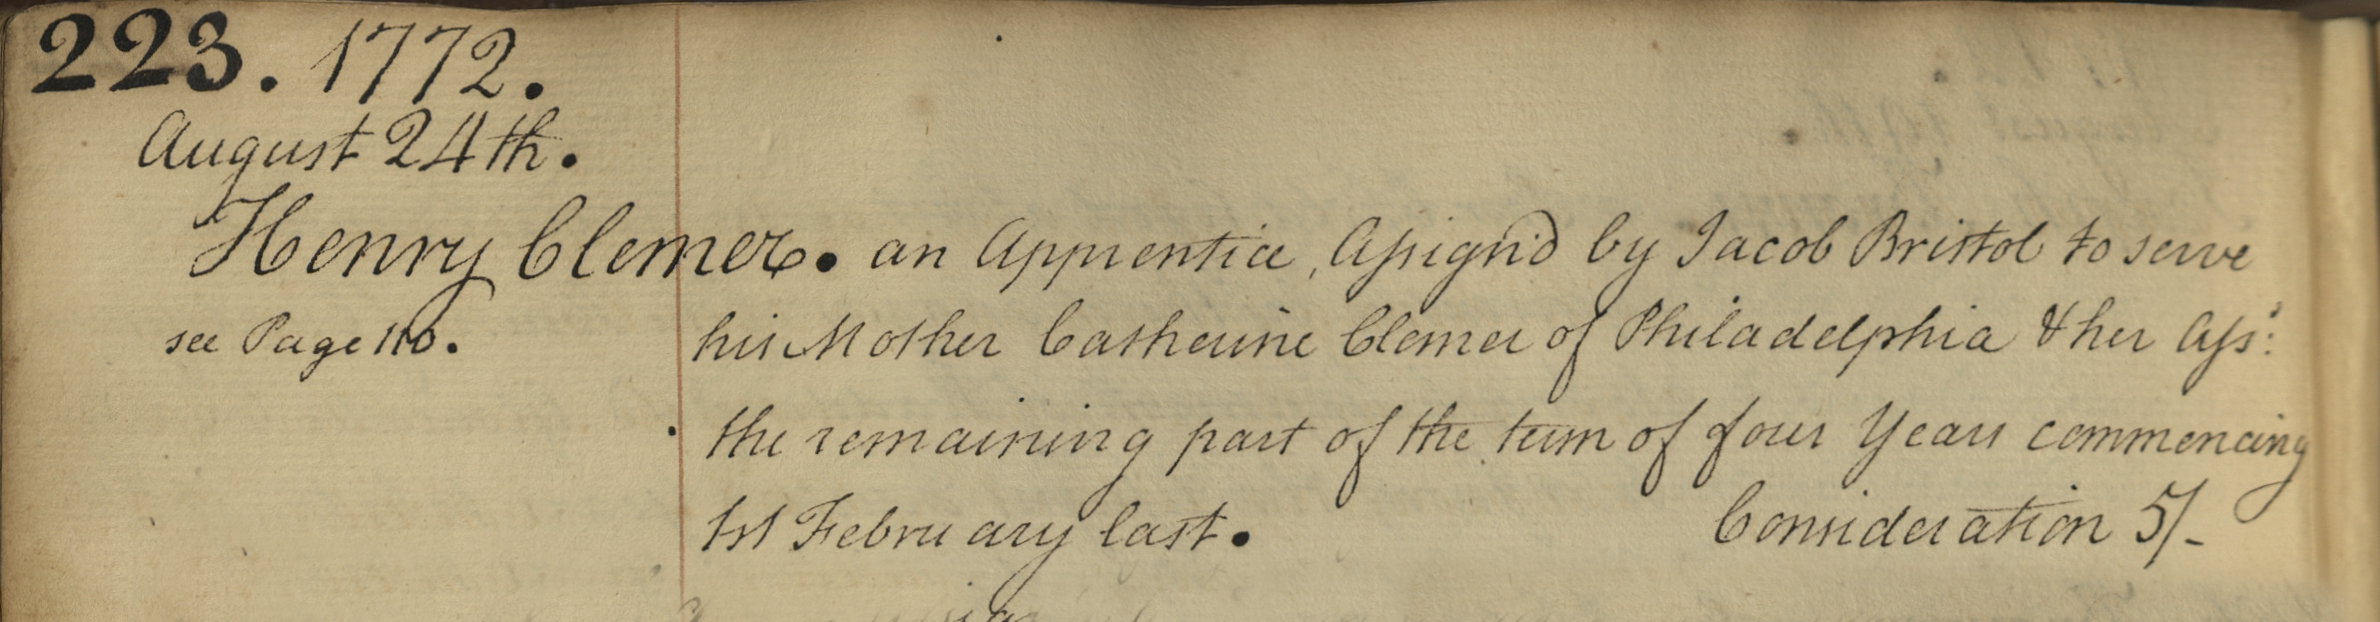 223. 1772.
August 24th.
Henry Clemer. an Apprentice, Assign'd by Jacob Bristol to serve
see Page 110.
his Mother Catherine Clemer of Philadelphia & her Ass:
the remaining part of the term of four Years commencing
1st February last. Consideration 5/-